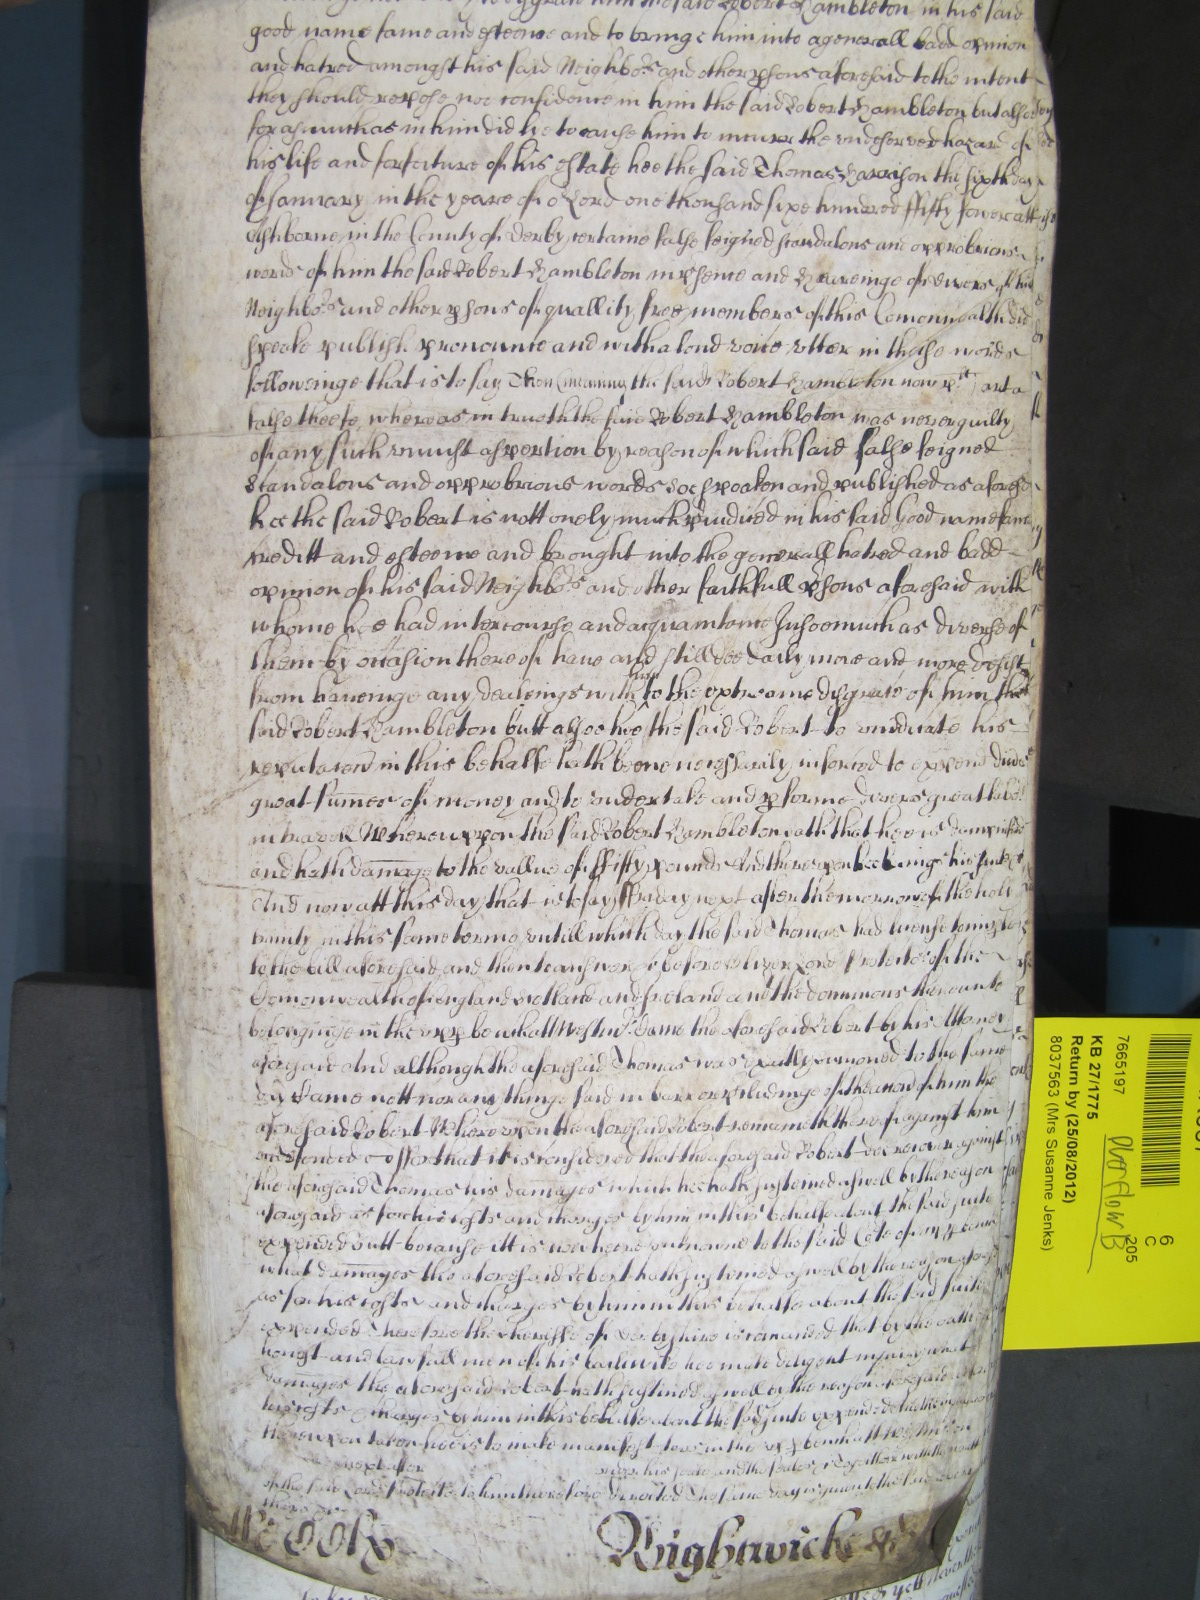 him the said Robert Hambleton in his said
good name fame and esteeme and to bringe him into a generall badd opinion
and hatred amongst his said Neighbors and other psons aforesaid to the intent
they should repose noe confidence in him the said Robert Hambleton but alsoe
forasmuch as in him did lye to cause him to incurr the undeserved hazard of
his life and forfeiture of his estate hee the said Thomas Harrison the sixth day
of January in the yeare of or Lord one thousand sixe hundred fifty fower att
Ashborne in the County of Derby certaine false feigned scandalous and opprobrious
words of him the said Robert Hambleton in psence and heareinge of divers of his
Neighbors and other psons of quallity free members of this Comonwealth did
speake publish pronounce and with a loud voice utter in theise words
followeinge that is to say Thou (meaning the said Robert Hambleton now pt) art a
false theefe whereas in truth the said Robert Hambleton was never guilty
of any such uniust aspertion by reason of which said false feigned
Scandalous and opprobrious words soe spoaken and published as aforesd
hee the said Robert is nott onely much piudiced in his said Good name fame
creditt and esteeme and brought into the generall hatred and badd
opinion of his said Neighbors and other faithfull psons aforesaid with
whome hee had intercourse and acquaintance Insoemuch as diverse of
them by occasion thereof have and still doe daily more and more desist
from haveinge any dealeings with him to the extreame disgrace of him the
said Robert Hambleton butt alsoe hee the said Robert to vindicate his
reputacon in this behalfe hath beene necessarily inforced to expend divers
great sumes of money and to undertake and pforme divers great labor
in travell Whereuppon the said Robert Hambleton saith that hee is dampnified
and hath damage to the vallue of fifty pounds And thereupon hee brings his suite &c
And now att this day that is to say Fryday next after the morrow of the holy
trinity in this same terme untill which day the said Thomas had license to imparle
to the bill aforesaid and then to answere &c before Oliver Lord Protector of the
Comonwealth of England Scotland and Ireland and the dominions thereunto
belonginge in the upp bench att Westmr Came the aforesaid Robert by his Attorney
aforesaid And although the aforesaid Thomas was exactly sumoned to the same
day Came nott nor any thinge said in barr or pcludinge of the accon of him the
aforesaid Robert Whereupon the aforesaid Robert remaineth thereof against him
undefended &c Soe that it is considered that the aforesaid Robert doe recover against
the aforesaid Thomas his damages which hee hath susteined aswell by the reason
aforesaid as for his costs and charges by him in this behalfe about the said suite
expended Butt because itt is unknowne to the said Cot of upp bench
what damages the aforesaid Robert hath susteined aswell by the reason aforesd
as for his costs and charges by him in this behalfe about the said suite
expended Therefore the Sheriffe of Derbyshire is comanded that by the oath of
honest and lawfull men of his bailiwicke hee make diligent inquiry what
damages the aforesaid Robert hath susteined aswell by the reason aforesaid as for
his costs & charges by him in this behalfe about the said suite expended
thereupon taken hee is to make manifest in the upp bench att Westmr on
under his seale and the seales &c together with the writt
of the said Lord Protector to him therefore directed The same day is given to the said
there &c
Wightwick
7665197
KB 27/1775
Return by (25/08/2012)
8037563 (Mrs Susanne Jenks)
Overflow B
6
C
205